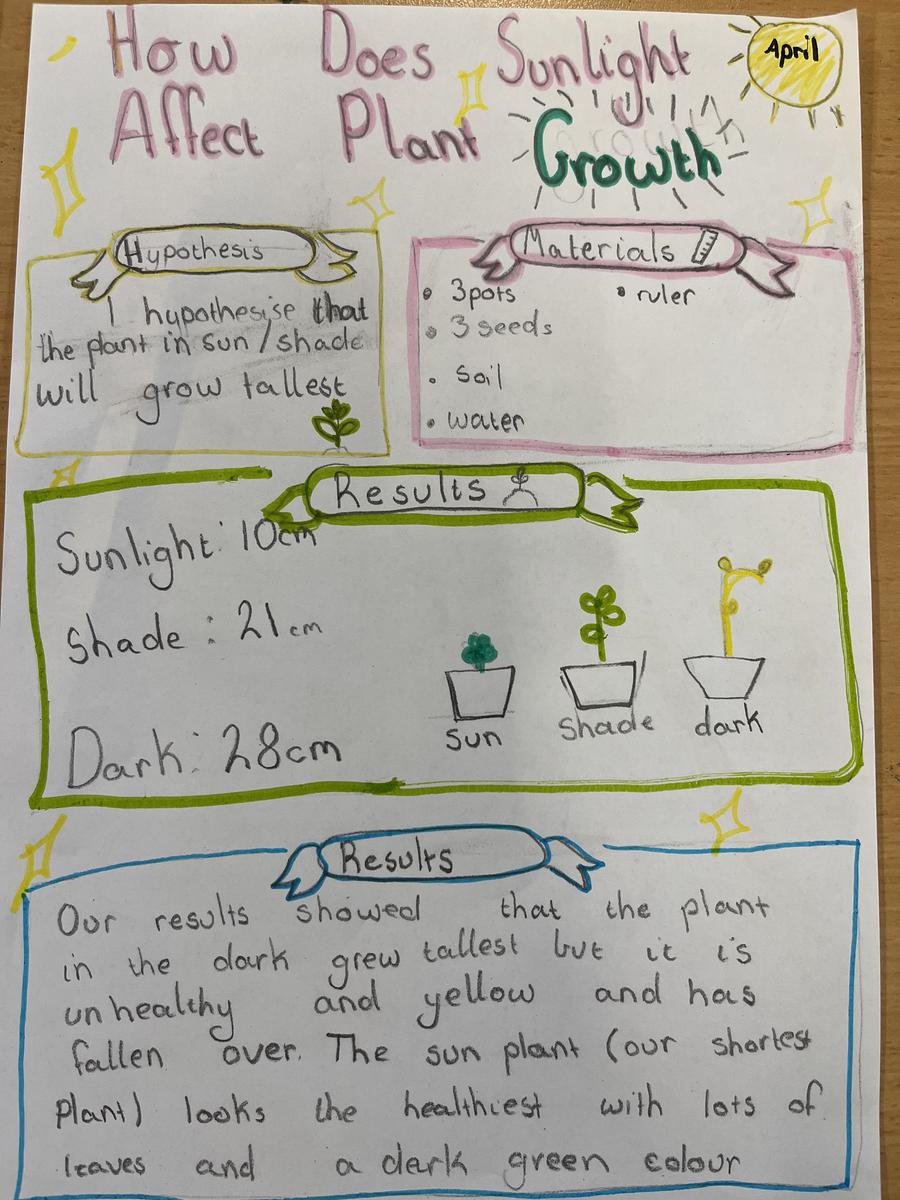 How Does Sunlight
April
Affect Plant Growth
Hypothesis
I hypothesise that
the plant in sun / shade
will grow tallest
Materials
• 3pots
• ruler
• 3 seeds
• soil
• water
Results
Sunlight: 10cm
Shade: 21cm
Dark: 28cm
sun
shade
dark
Results
Our results showed that the plant
in the dark grew tallest but it is
unhealthy and yellow and has
fallen over. The sun plant (our shortest
plant) looks the healthiest with lots of
leaves and a dark green colour